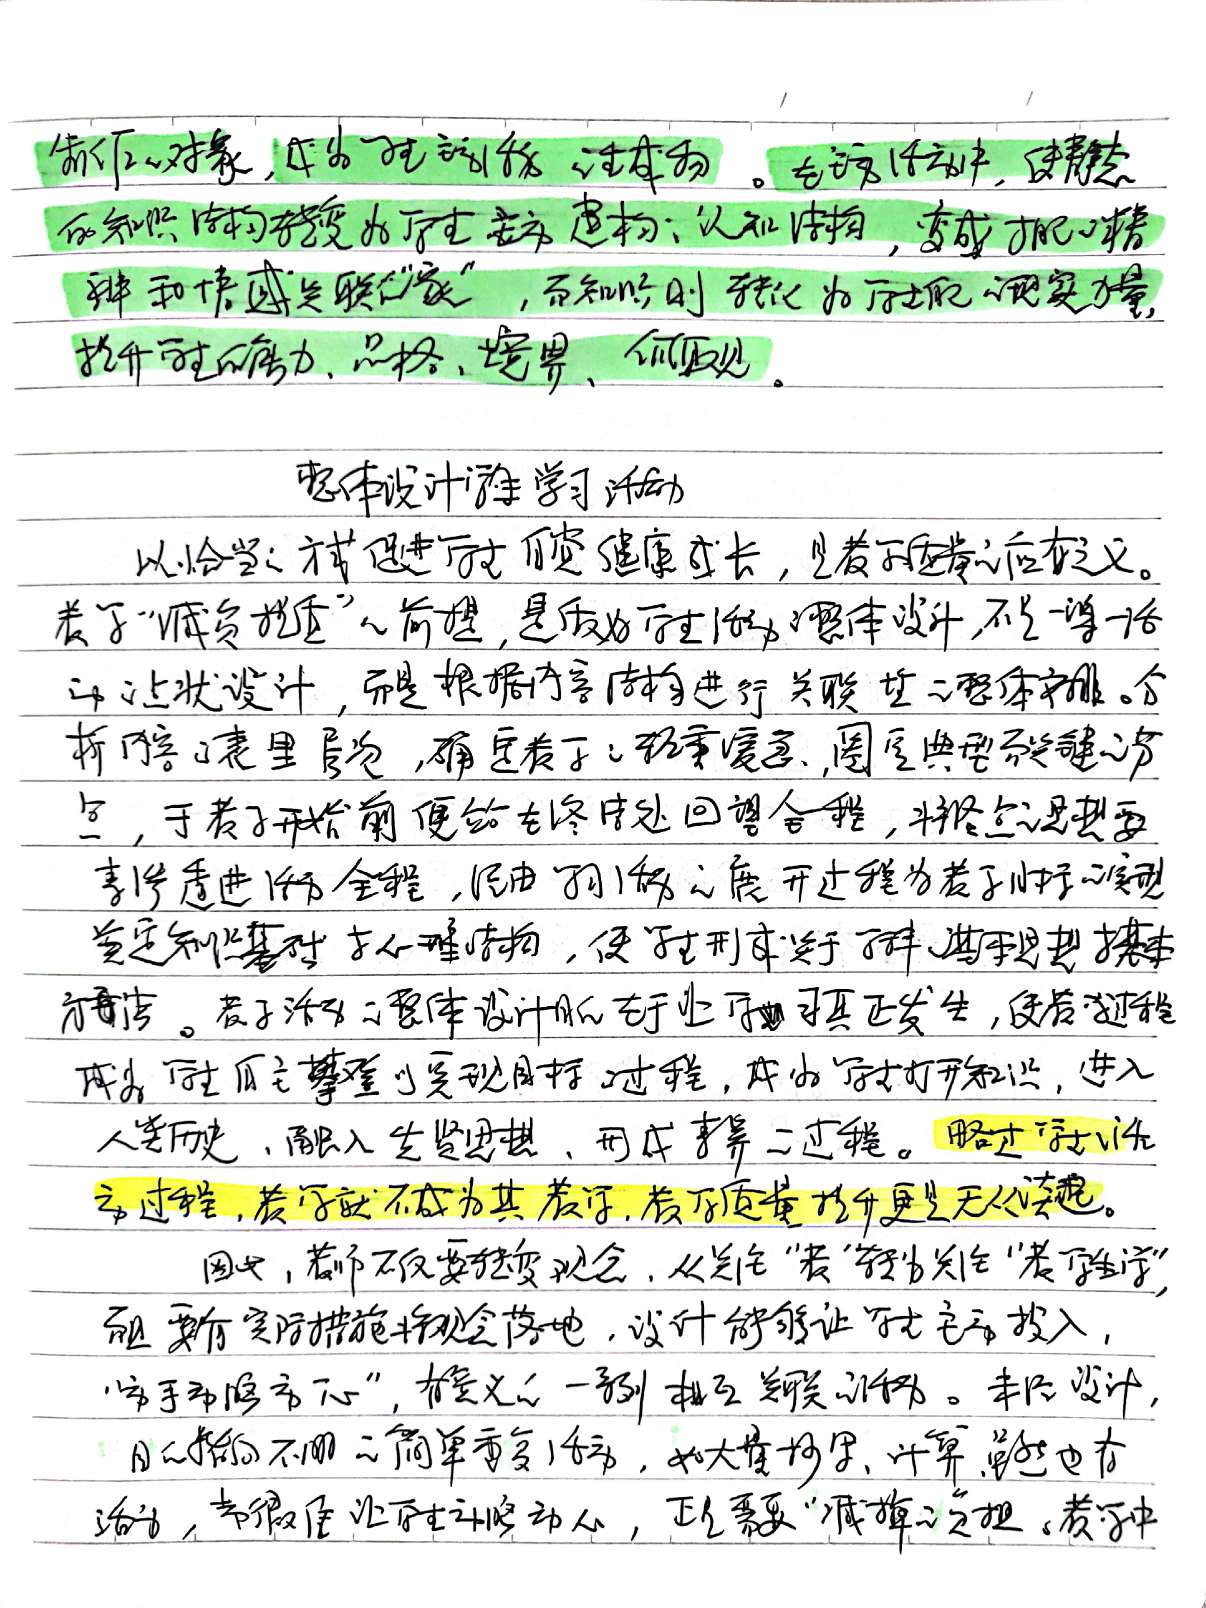 操作的对象，成为学生主动活动的基本物。在主动活动中，使静态
的知识结构转变为学生主动建构的认知结构，变成可以精
神和情感关联的“家”，而知识则转化为学生的现实力量，
提升学生的能力、品格、境界、价值观。
整体设计学生学习活动
以恰当的方式促进学生自觉健康成长，是教学质量的应有之义。
教学“减负提质”的前提，是展开学生活动的整体设计，不是一课一活
动的点状设计，而是根据内容结构进行关联性的整体安排。分
析内容的表里层次，确定教学的轻重缓急，圈定典型而关键的节
点，于教学开始前便站在终点处回望全程，将终点的思想要
素渗透进活动全程，经由学习活动的展开过程为教学目标的实现
奠定知识基础与心理结构，使学生形成关于学科的基本思想与基本
方法。教学活动的整体设计用心在于让学生学习真正发生，使教学过程
成为学生自主攀登以实现目标的过程，成为学生打开知识，进入
人类历史、融入先贤思想、形成素养的过程。略过学生的活
动过程，教学就不成为其教学，教学质量提升更是无从谈起。
因此，教师不仅要转变观念，从关注“教”转为关注“教学生学”，
而且要有实际措施将观念落地，设计能够让学生主动投入，
“动手动脑动心”，有意义的一系列相互关联的活动。未经设计，
目的指向不明的简单重复活动，如大量抄写、计算，虽然也有
活动，却很难让学生动脑动心，正是需要“减掉”的负担。教学中